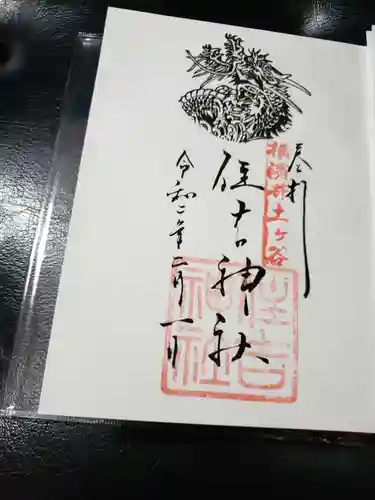 奉拝
横濱井土ヶ谷
住吉神社
令和二年二月一日
住吉
神社